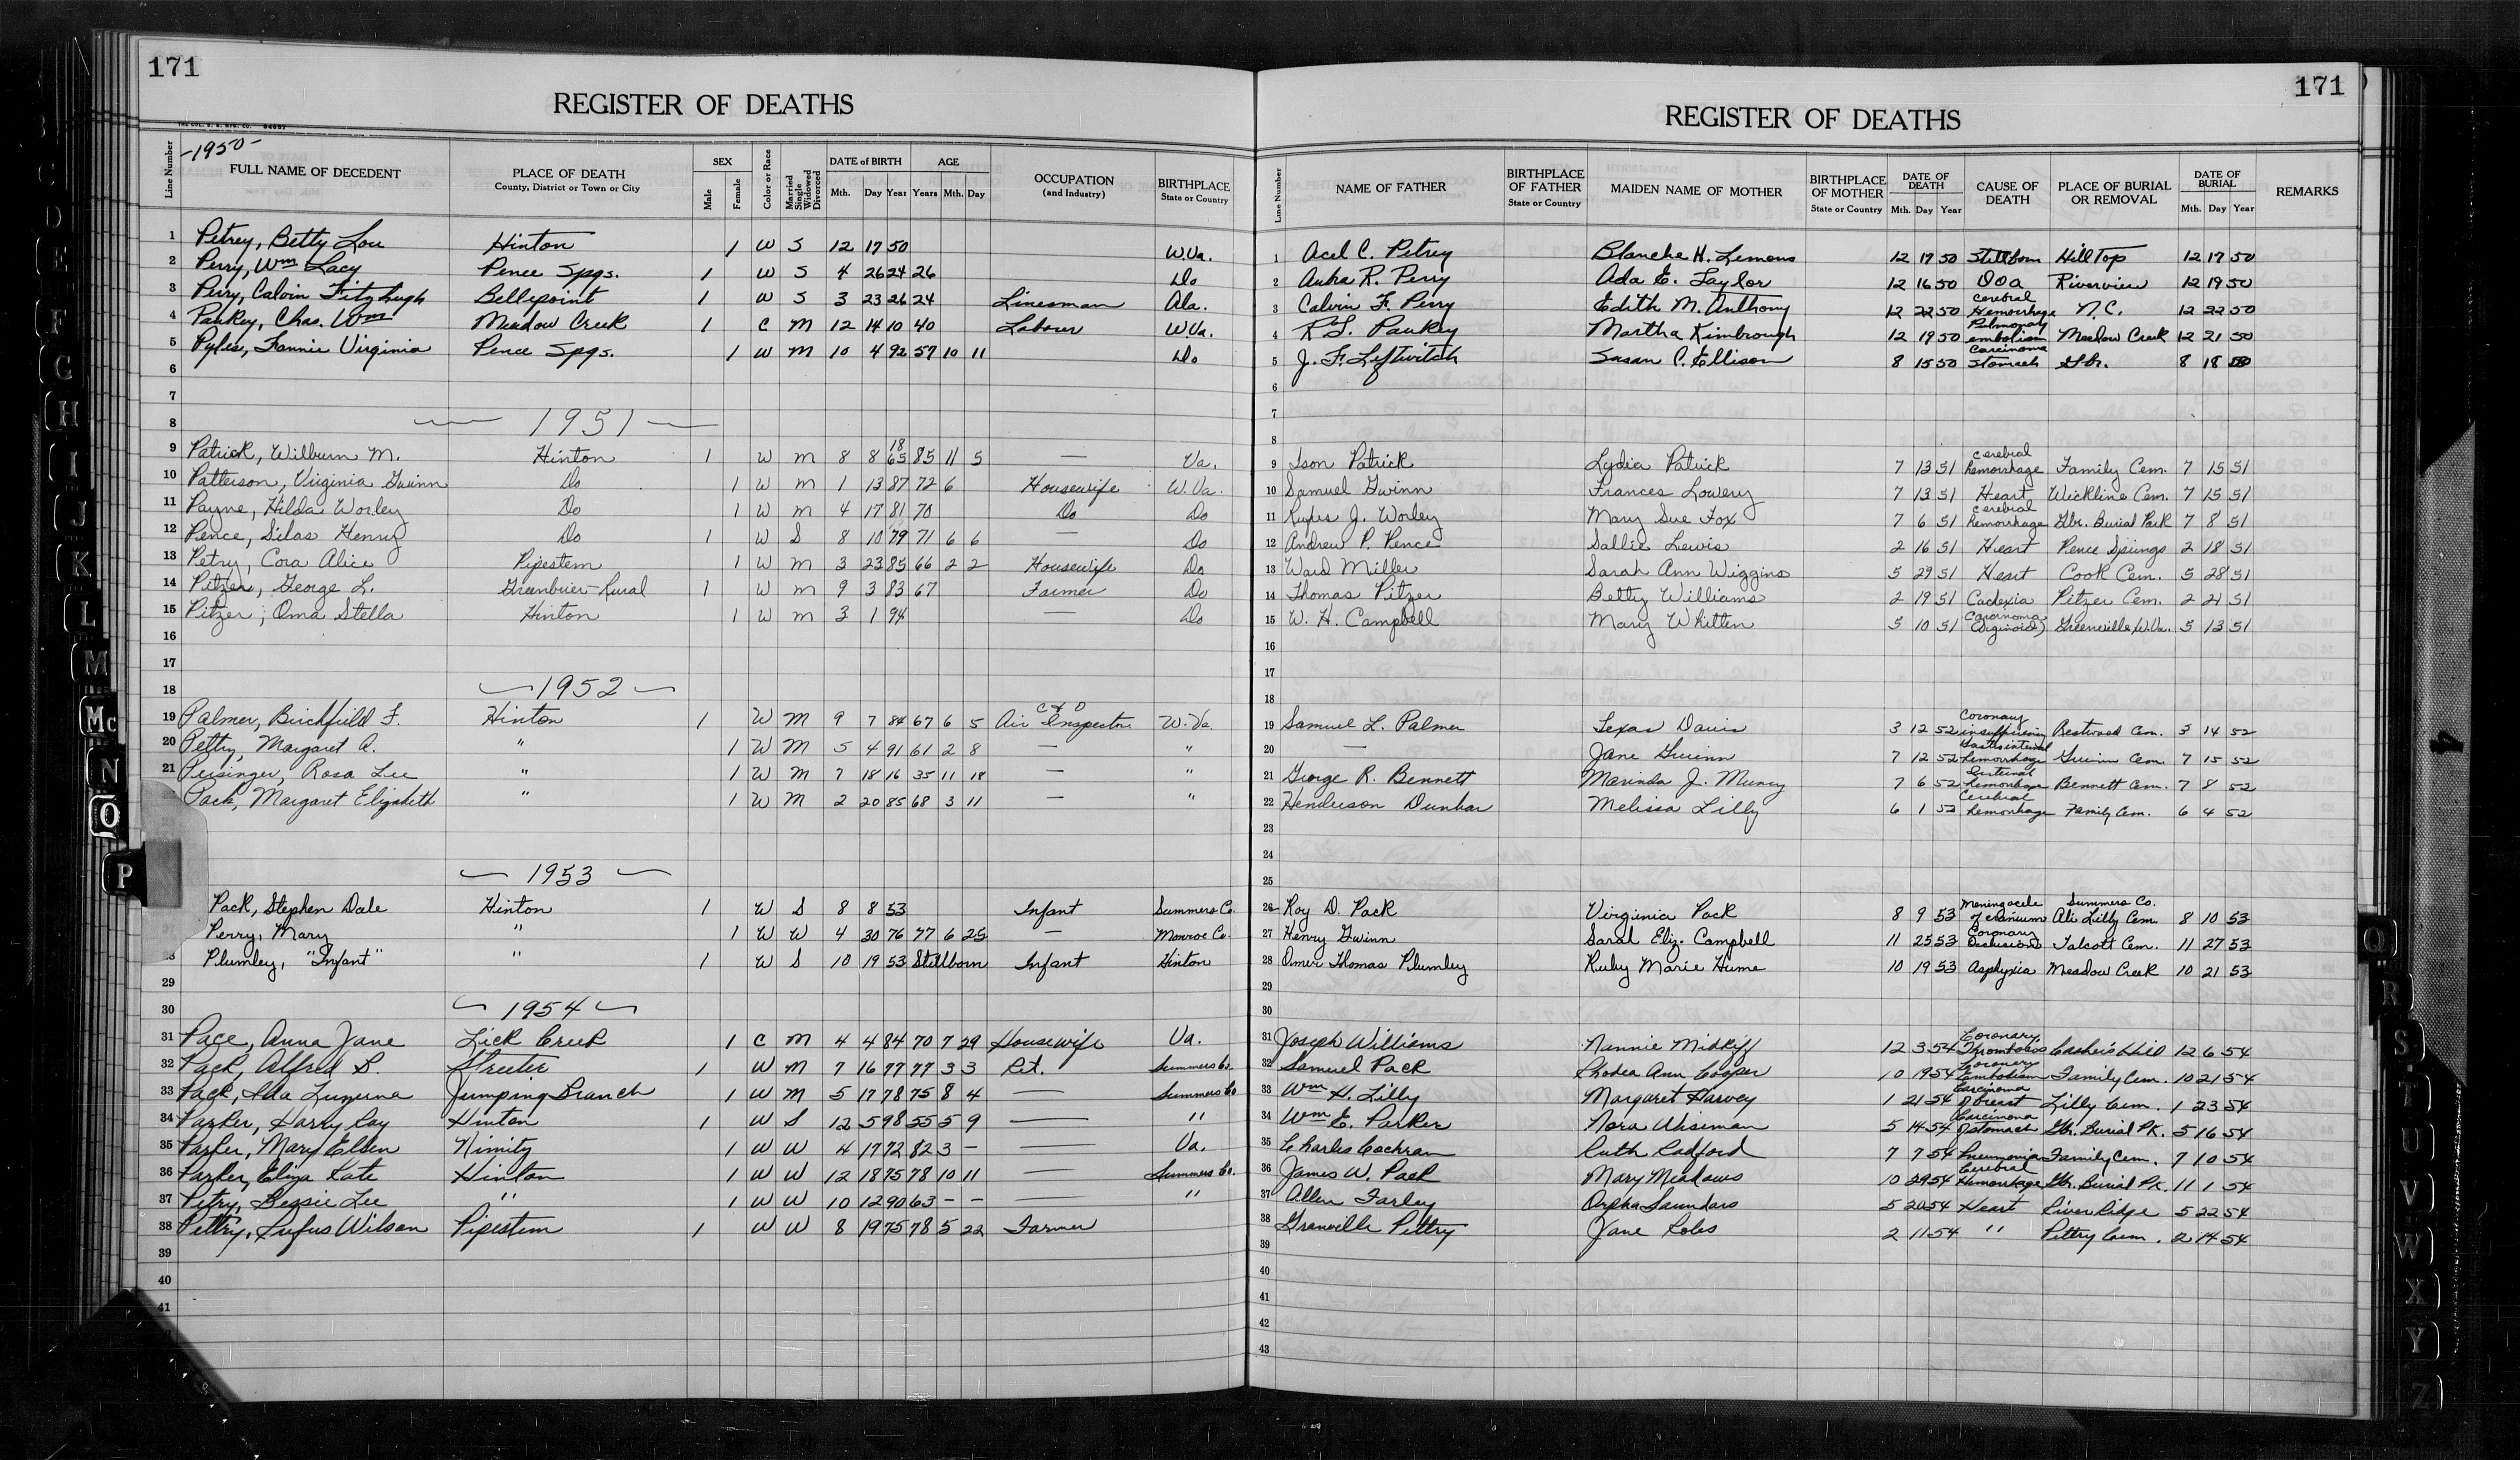 171
REGISTER OF DEATHS
-1950-
Line Number
FULL NAME OF DECEDENT
PLACE OF DEATH
County, District or Town or City
SEX
Male
Female
Color or Race
Married Single Widowed Divorced
DATE of BIRTH
Mth. Day Year
AGE
Years Mth. Day
OCCUPATION
(and Industry)
BIRTHPLACE
State or Country
1 Petrey, Betty Lou Hinton 1 W S 12 17 50 W.Va.
2 Perry, Wm Lacy Pence Spgs. 1 W S 4 26 24 26 Do
3 Perry, Calvin Fitzhugh Bellepoint 1 W S 3 23 26 24 Linesman Ala.
4 Paukey, Chas. Wm Meadow Creek 1 C M 12 14 10 40 Laborer W.Va.
5 Pyles, Fannie Virginia Pence Spgs. 1 W M 10 4 92 57 10 11 Do
6
7
8 1951
9 Patrick, Wilburn M. Hinton 1 W M 8 8 1865 85 11 5 — Va.
10 Patterson, Virginia Gwinn Do 1 W M 1 13 87 72 6 Housewife W.Va.
11 Payne, Hilda Worley Do 1 W M 4 17 81 70 Do Do
12 Pence, Silas Henry Do 1 W S 8 10 79 71 6 6 — Do
13 Petry, Cora Alice Pipestem 1 W M 3 23 85 66 2 2 Housewife Do
14 Pitzer, George L. Greenbrier-Rural 1 W M 9 3 83 67 Farmer Do
15 Pitzer, Oma Stella Hinton 1 W M 3 1 94 — Do
16
17
18 1952
19 Palmer, Birchfield F. Hinton 1 W M 9 7 84 67 6 5 C & O Air Inspector W.Va.
20 Pettry, Margaret A. " 1 W M 5 4 91 61 2 8 — "
21 Peisinger, Rosa Lee " 1 W M 7 18 16 35 11 18 — "
Pack, Margaret Elizabeth " 1 W M 2 20 85 68 3 11 — "
1953
Pack, Stephen Dale Hinton 1 W S 8 8 53 Infant Summers Co.
Perry, Mary " 1 W W 4 30 76 77 6 25 — Monroe Co.
Plumley, "Infant" " 1 W S 10 19 53 Stillborn Infant Hinton
29
30 1954
31 Pace, Anna Jane Lick Creek 1 C M 4 4 84 70 7 29 Housewife Va.
32 Pack, Alfred B. Streeter 1 W M 7 16 77 77 3 3 Ret. Summers Co.
33 Pack, Ida Luzerna Jumping Branch 1 W M 5 17 78 75 8 4 — Summers Co
34 Parker, Harry Ray Hinton 1 W S 12 5 98 55 5 9 — "
35 Parker, Mary Ellen Nimitz 1 W W 4 17 72 82 3 — — Va.
36 Parker, Eliza Kate Hinton 1 W W 12 18 75 78 10 11 — Summers Co.
37 Petry, Bessie Lee " 1 W W 10 12 90 63 — — — "
38 Pettry, Rufus Wilson Pipestem 1 W W 8 19 75 78 5 22 Farmer
39
40
41
171
REGISTER OF DEATHS
Line Number
NAME OF FATHER
BIRTHPLACE OF FATHER
State or Country
MAIDEN NAME OF MOTHER
BIRTHPLACE OF MOTHER
State or Country
DATE OF DEATH
Mth. Day Year
CAUSE OF DEATH
PLACE OF BURIAL OR REMOVAL
DATE OF BURIAL
Mth. Day Year
REMARKS
1 Acel C. Petrey Blanche H. Lemons 12 17 50 Stillborn Hill Top 12 17 50
2 Auba R. Perry Ada E. Taylor 12 16 50 DOA Riverview 12 19 50
3 Calvin F. Perry Edith M. Anthony 12 22 50 Cerebral Hemorrhage N.C. 12 22 50
4 R.L. Paukey Martha Kimbrough 12 19 50 Pulmonary embolism Meadow Creek 12 21 50
5 J. F. Leftwitch Susan C. Ellison 8 15 50 Carcinoma Stomach Gbr. 8 18 50
6
7
8
9 Ison Patrick Lydia Patrick 7 13 51 Cerebral hemorrhage Family Cem. 7 15 51
10 Samuel Gwinn Frances Lowery 7 13 51 Heart Wickline Cem. 7 15 51
11 Rufus J. Worley Mary Sue Fox 7 6 51 Cerebral hemorrhage Gbr. Burial Park 7 8 51
12 Andrew P. Pence Sallie Lewis 2 16 51 Heart Pence Springs 2 18 51
13 Ward Miller Sarah Ann Wiggins 5 29 51 Heart Cook Cem. 5 28 51
14 Thomas Pitzer Betty Williams 2 19 51 Cachexia Pitzer Cem. 2 21 51
15 W. H. Campbell Mary Whitten 5 10 51 Carcinoma Greenville, W.Va. 5 13 51
16
17
18
19 Samuel L. Palmer Texas Davis 3 12 52 Coronary insufficiency Restwood Cem. 3 14 52
20 — Jane Gwinn 7 12 52 Gastrointestinal hemorrhage Gwinn Cem. 7 15 52
21 George R. Bennett Marinda J. Muncy 7 6 52 Internal hemorrhage Bennett Cem. 7 8 52
22 Henderson Dunbar Melissa Lilly 6 1 52 Cerebral hemorrhage Family Cem. 6 4 52
23
24
25
26 Roy D. Pack Virginia Pack 8 9 53 Meningocele of cranium Summers Co. Ali Lilly Cem. 8 10 53
27 Henry Gwinn Sarah Eliz. Campbell 11 25 53 Coronary Occlusion Talcott Cem. 11 27 53
28 Omer Thomas Plumley Ruby Marie Hume 10 19 53 Asphyxia Meadow Creek 10 21 53
29
30
31 Joseph Williams Nannie Midkiff 12 3 54 Coronary Thrombosis 12 6 54
32 Samuel Pack Rhodea Ann Cooper 10 19 54 Coronary Embolism Family Cem. 10 21 54
33 Wm H. Lilly Margaret Harvey 1 21 54 Carcinoma of breast Lilly Cem. 1 23 54
34 Wm E. Parker Nora Wiseman 5 14 54 Carcinoma of stomach Gbr. Burial Pk. 5 16 54
35 Charles Cochran Ruth Radford 7 7 54 Pneumonia Family Cem. 7 10 54
36 James W. Pack Mary Meadows 10 29 54 Cerebral Hemorrhage Gbr. Burial Pk. 11 1 54
37 Allen Farley Orpha Saunders 5 20 54 Heart River Ridge 5 22 54
38 Granville Pettry Jane Roles 2 11 54 " Pettry Cem. 2 14 54
39
40
41
42
43
E
F
G
H
I
J
K
L
M
Mc
N
O
P
Q
R
S
T
U
V
W
X
Y
Z
4